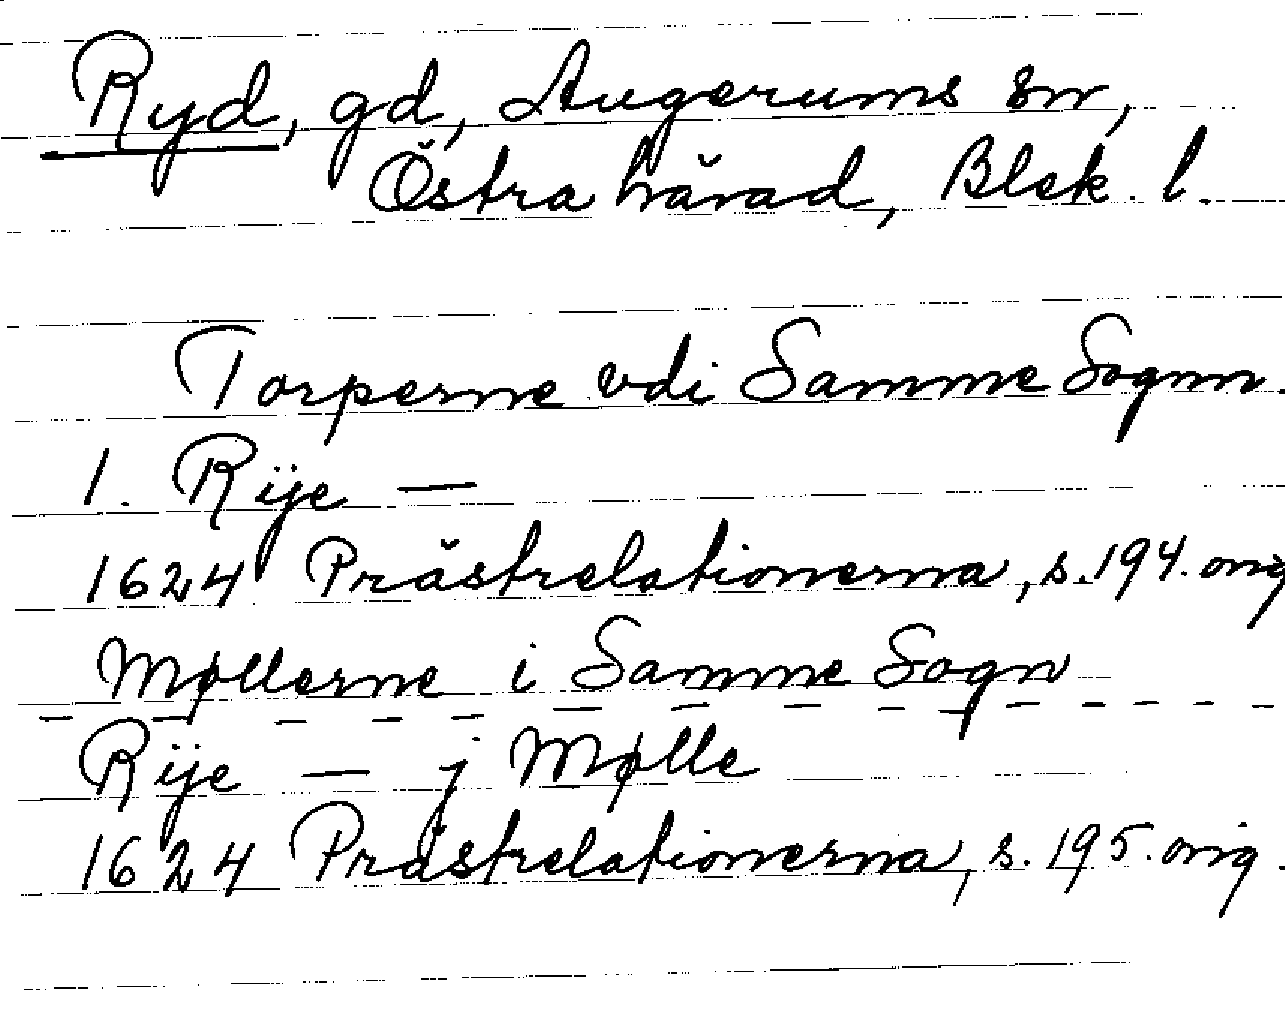 Ryd, gd, Augerums sn,
Östra härad, Blek. l.
Torperne vdi Samme Sognn.
1. Rije —
1624 Prästrelationerna, s. 194. orig
Møllerne i Samme Sogn
Rije — j Mølle
1624 Prästrelationerna, s. 195. orig.